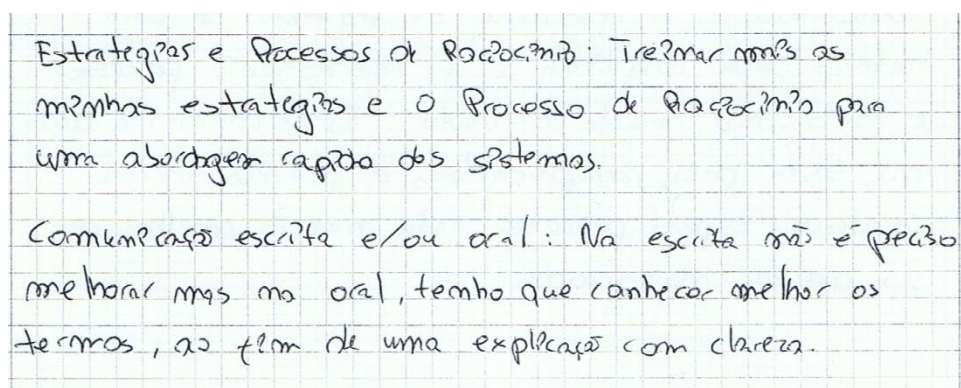 Estrategias e Processos de Raciocinio: Treinar mais as
minhas estrategias e o Processo de Raciocinio para
uma abordagem rapida dos sistemas.
Comunicação escrita e/ou oral: Na escrita não é preciso
melhorar mas no oral, tenho que conhecer melhor os
termos, ao fim de uma explicação com clareza.